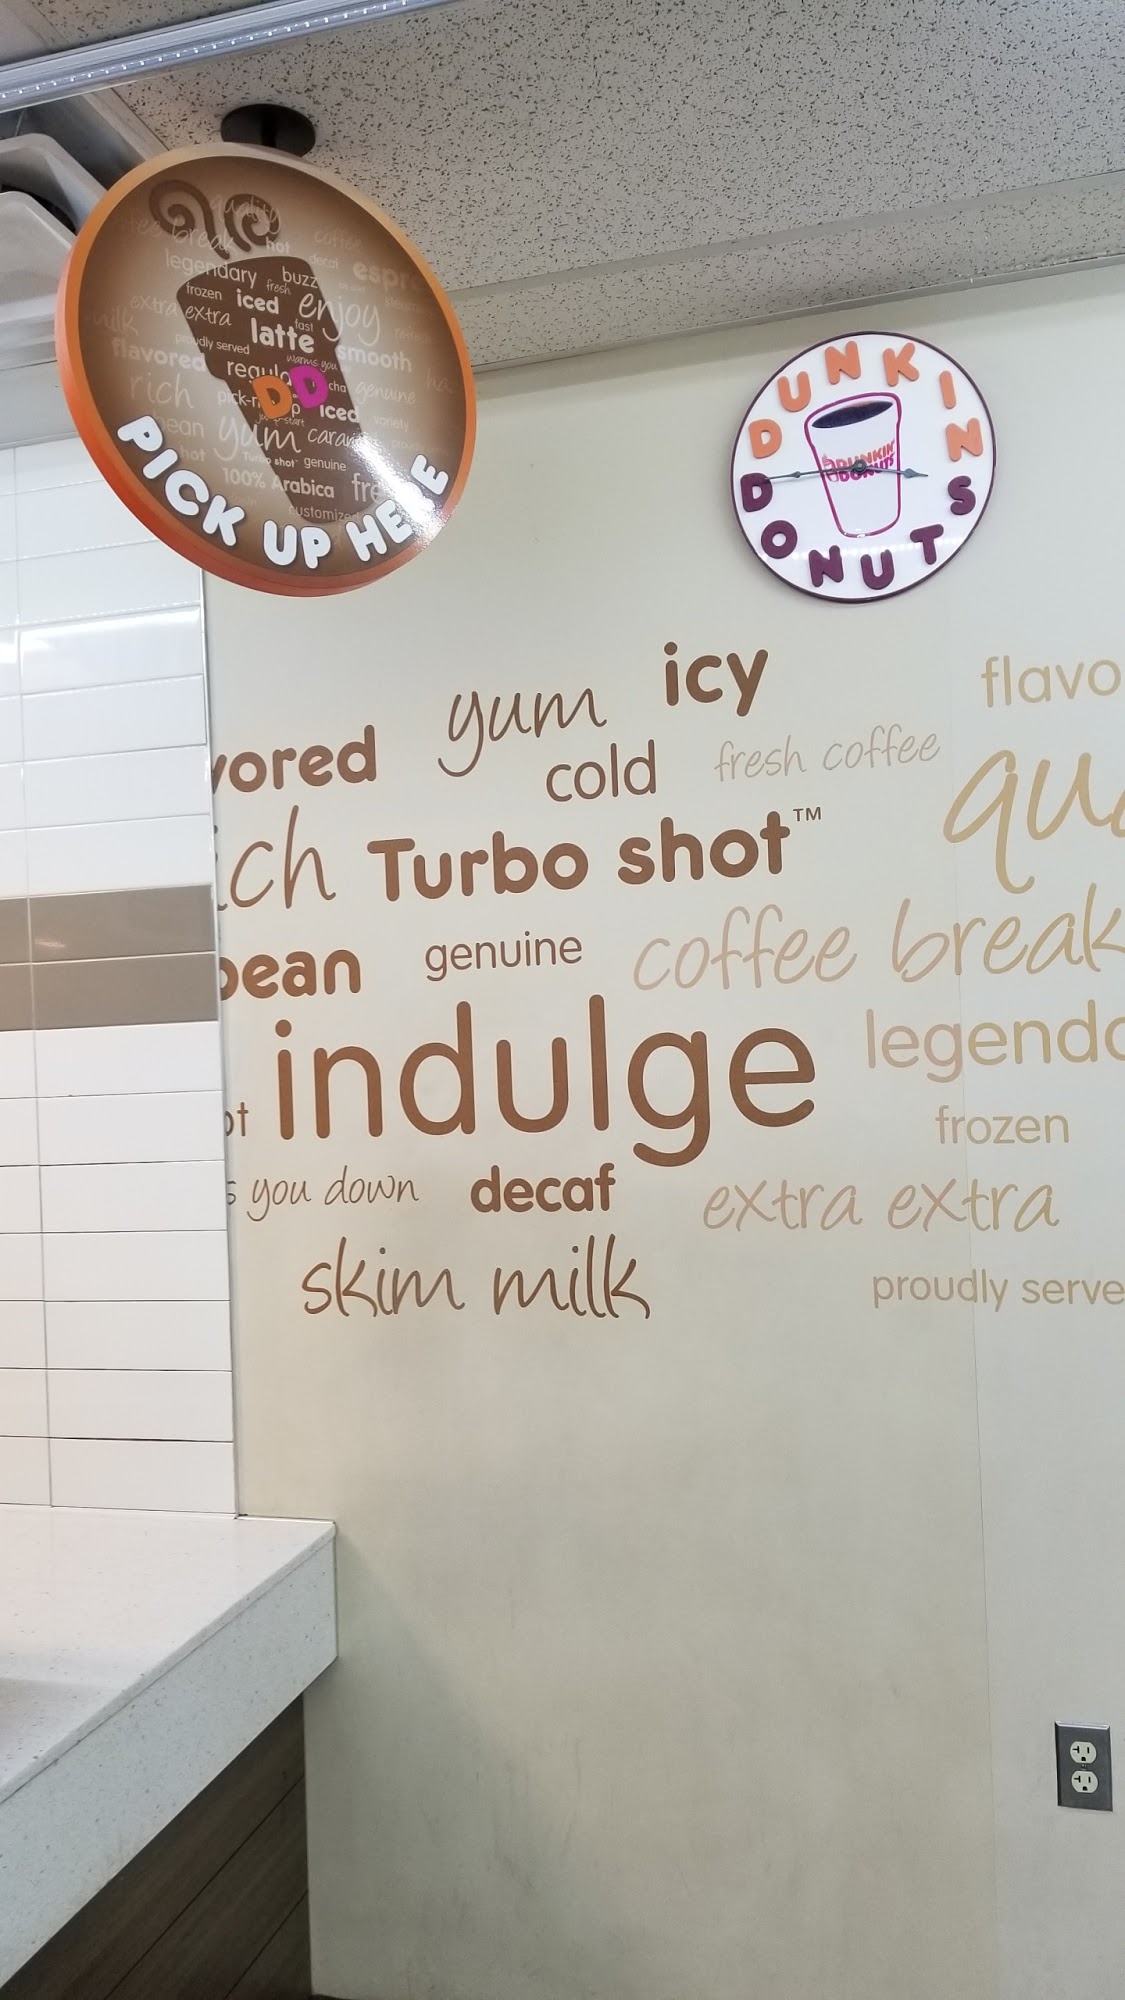 quality
coffee break
hot
coffee
legendary
buzz
decaf
espre
frozen
fresh
iced
enjoy
extra extra
fast
latte
milk
proudly served
smooth
flavored
warms you
regula
rich
DD
cha
genuine
pick-
iced
variety
bean
yum
caram
hot
Turbo shot
genuine
100% Arabica
fre
customize
PICK UP HERE
DUNKIN
DUNKIN'
DONUTS
DONUTS
icy
yum
flavo
vored
cold
fresh coffee
qua
ich
Turbo shot™
bean
genuine
coffee break
indulge
legenda
ot
frozen
s you down
decaf
extra extra
skim milk
proudly serve